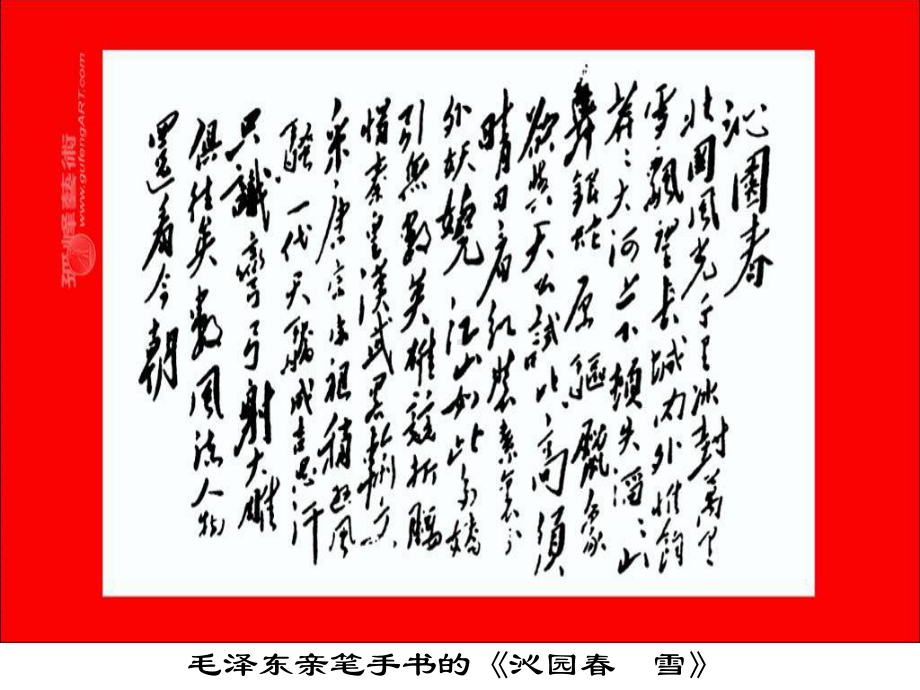 沁園春
北國風光千里冰封萬里
雪飄望長城内外惟餘
莽〻大河上下頓失滔〻山
舞銀蛇原驅臘象
欲與天公試比高須
晴日看紅裝素裹分
外妖嬈江山如此多嬌
引無數英雄競折腰
惜秦皇漢武略輸文
采唐宗宋祖稍遜風
騷一代天驕成吉思汗
只識彎弓射大雕
俱往矣數風流人物
還看今朝
www.gufengART.com
毛泽东亲笔手书的《沁园春　雪》